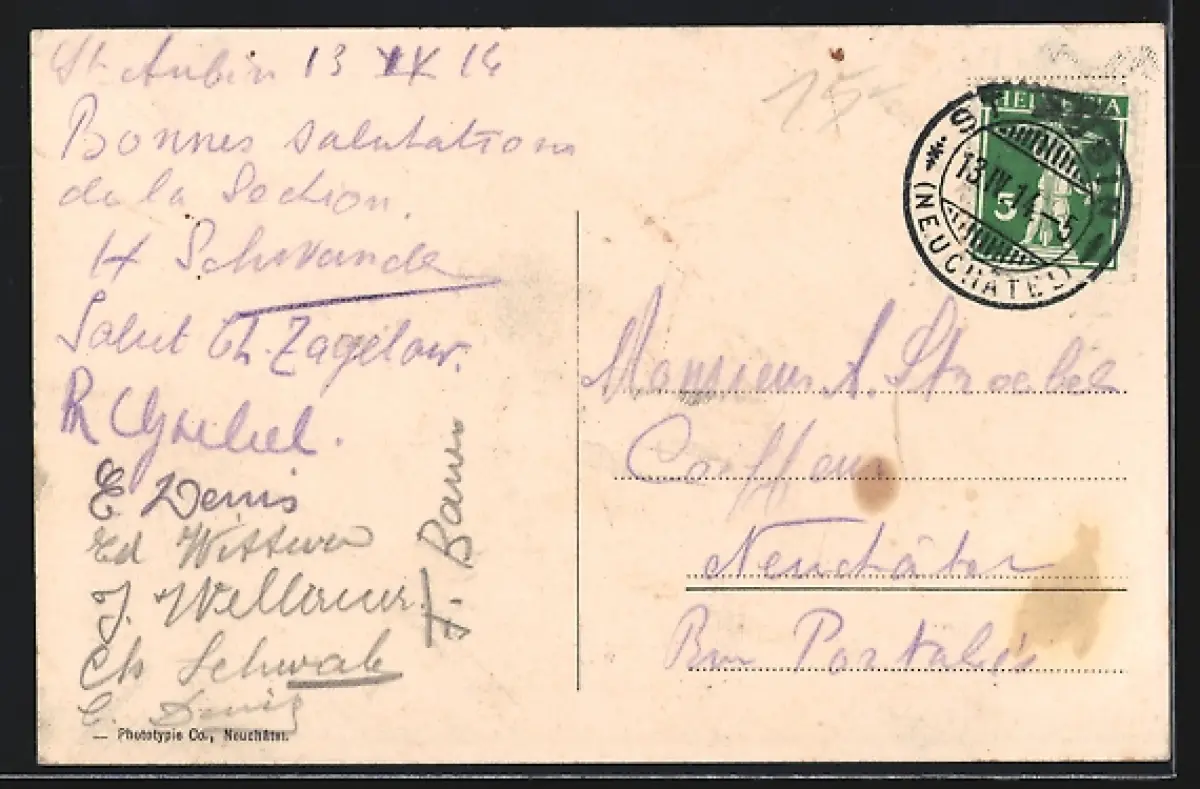 St Aubin 13 IX 14
Bonnes salutations
de la Section.
H Schwande
Salut Ch. Zagelow.
R
E Denis
Ed Wittwer
J. Wellauer
F. Bauer
Ch Schwab
E. Denis
— Phototypie Co., Neuchâtel.
15-
HELVETIA
5
13.IV.14-5
* (NEUCHÂTEL)
Monsieur A. Stroebel
Coiffeur
Neuchâtel
Portalès